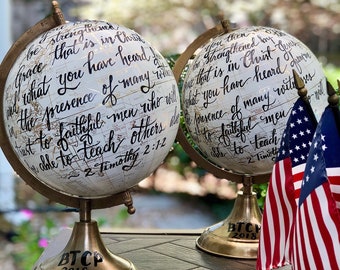 be strengthened
grace that is in Christ
what you have heard
the presence of many
to faithful men who will
to teach others also
2 Timothy 2:1-2
BTCP
be strengthened
that is in Christ
what you have heard
the presence of many
to faithful
to teach
2 Timothy
BTCP